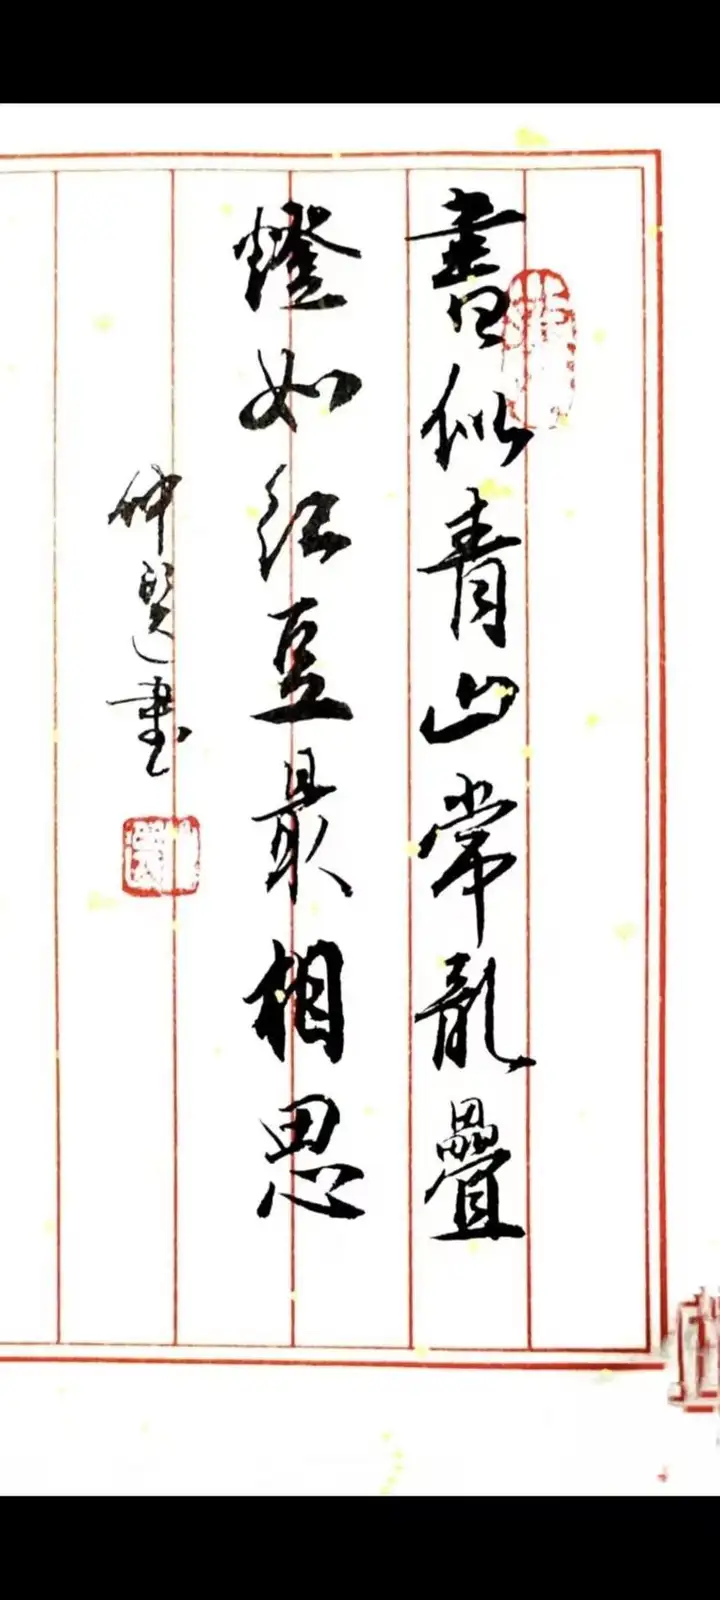 書似青山常亂疊
燈如紅豆最相思
仲選書